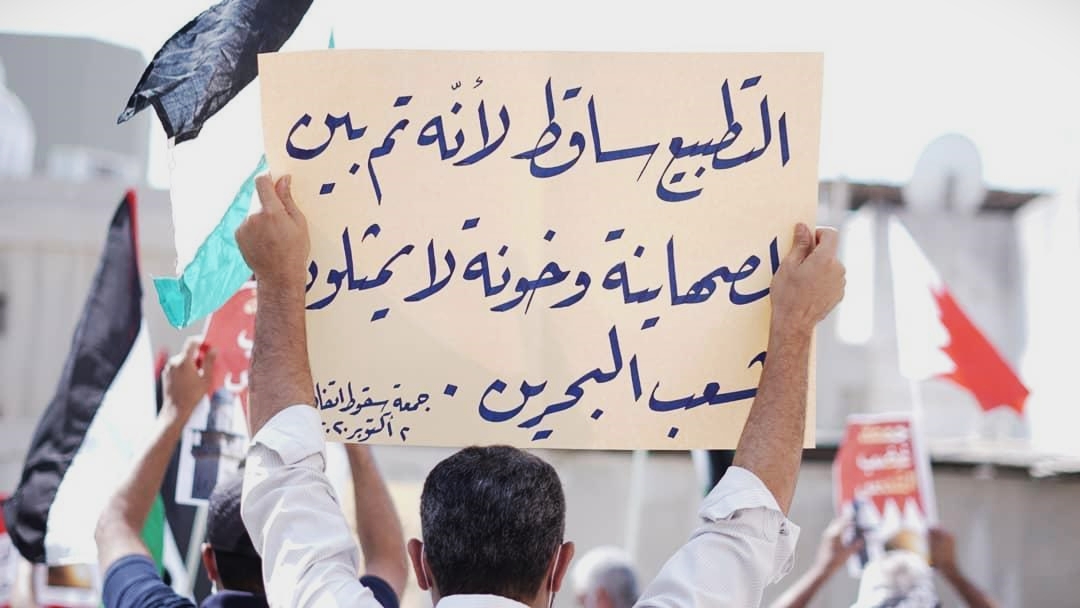 التطبيع ساقط لأنّه تم بين
لصهاينة وخونة لا يمثلون
شعب البحرين .
جمعة سقوط اتفا
٢ أكتوبر ٢٠٢
غضب
القدس